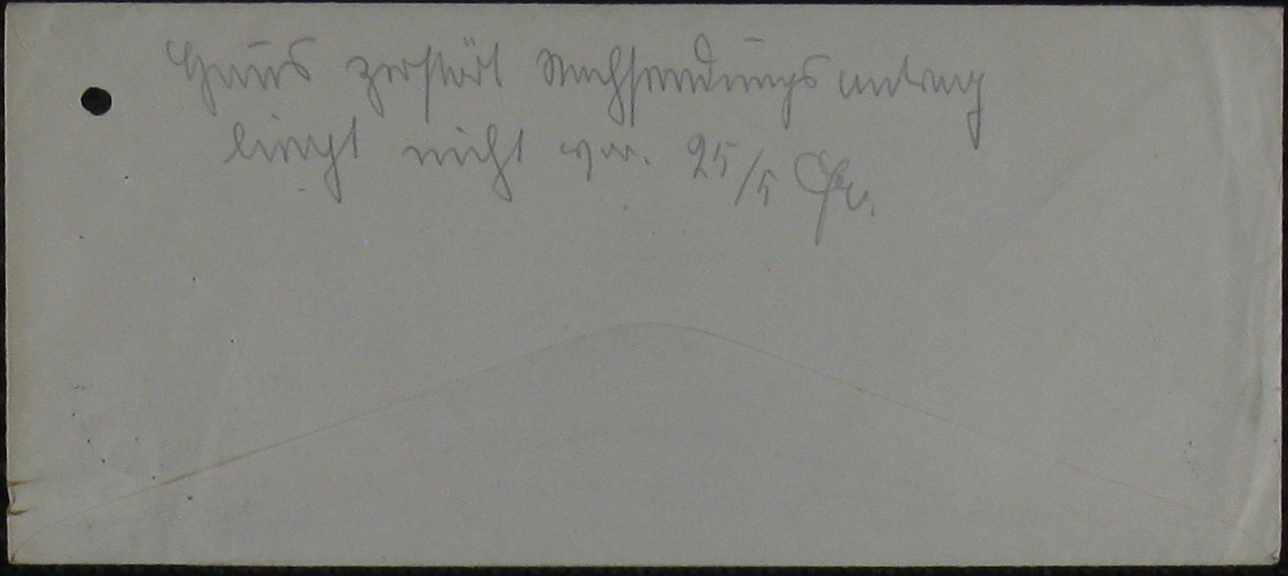 Haus zerstört Nachsendungsantrag
liegt nicht vor. 25/5